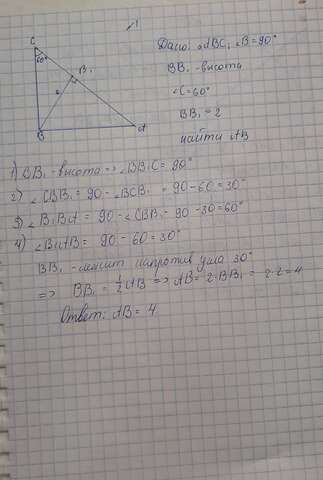 √1
C
60°
B₁
2
B
A
Дано: △ABC, ∠B=90°
BB₁ - высота
∠C=60°
BB₁ = 2
найти AB
1) BB₁ - высота => ∠BB₁C = 90°
2) ∠CBB₁ = 90 - ∠BCB₁ = 90-60=30°
3) ∠B₁BA = 90 - ∠CBB₁ = 90-30=60°
4) ∠B₁AB = 90-60=30°
BB₁ - лежит напротив угла 30°
=> BB₁ = 1/2 AB => AB = 2·BB₁ = 2·2=4
Ответ: AB = 4